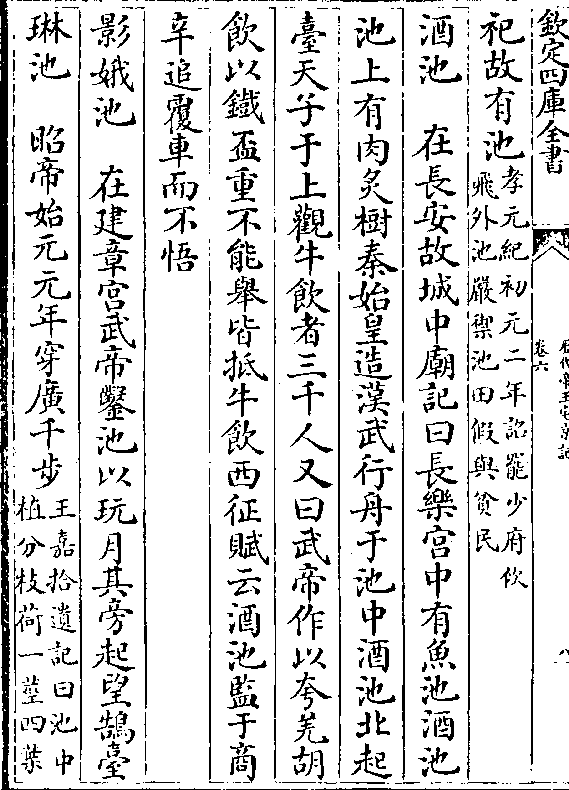 欽定四庫全書
卷六
祀故有池孝元紀初元二年詔罷少府佽
飛外池嚴籞池田假與貧民
酒池　在長安故城中廟記曰長樂宮中有魚池酒池
池上有肉炙樹秦始皇造漢武行舟于池中酒池北起
臺天子于上觀牛飲者三千人又曰武帝作以夸羌胡
飲以鐵盃重不能舉皆抵牛飲西征賦云酒池監于商
辛追覆車而不悟
影娥池　在建章宮武帝鑿池以玩月其旁起望鵠臺
琳池　昭帝始元元年穿廣千步王嘉拾遺記曰池中
植分枝荷一莖四葉